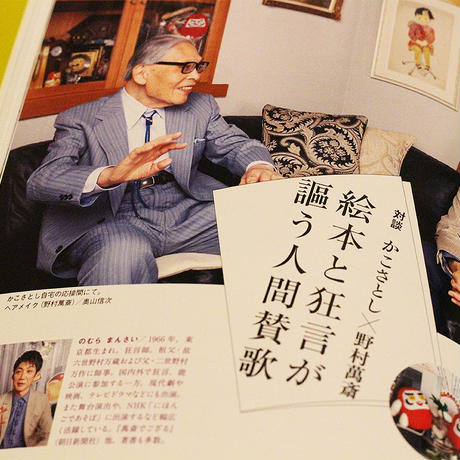 対談 かこさとし×野村萬斎
絵本と狂言が
謳う人間賛歌
かこさとし自宅の応接間にて。
ヘアメイク(野村萬斎)/奥山信次
のむら まんさい/1966年、東
京都生まれ。狂言師。祖父・故
六世野村万蔵および父・二世野村
万作に師事。国内外で狂言、能
公演に参加する一方、現代劇や
映画、テレビドラマなどにも出演。
また舞台演出や、NHK「にほん
ごであそぼ」に出演するなど幅広
く活躍している。『萬斎でござる』
(朝日新聞社)他、著書も多数。